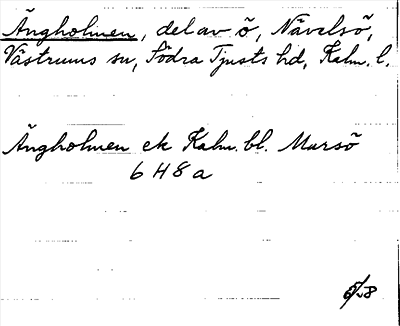 Ängholmen, del av ö, Nävelsö,
Västrums sn, Södra Tjusts hd, Kalm. l.
Ängholmen ek Kalm. bl. Marsö
6 H 8 a